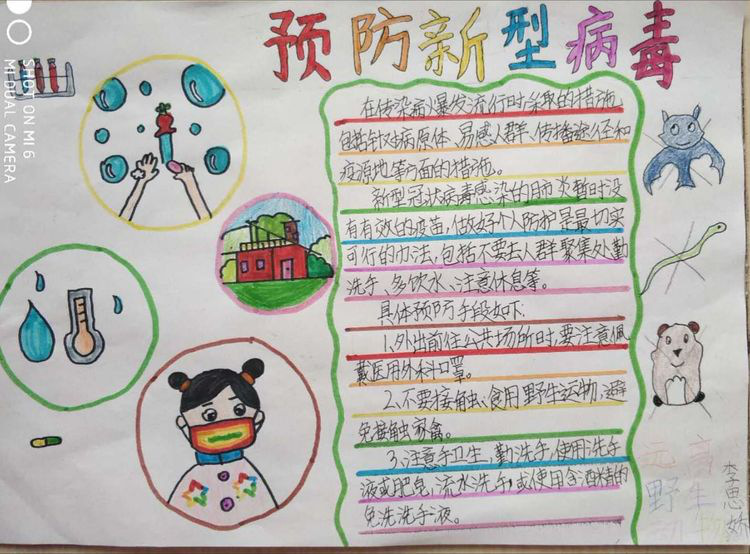 预防新型病毒
在传染病爆发流行时采取的措施,
包括针对病原体、易感人群、传播途径和
疫源地等方面的措施。
新型冠状病毒感染的肺炎暂时没
有有效的疫苗,做好个人防护是最切实
可行的办法,包括不要去人群聚集处勤
洗手、多饮水、注意休息等。
具体预防手段如下:
1.外出前往公共场所时,要注意佩
戴医用外科口罩。
2.不要接触、食用野生动物,避
免接触家禽。
3.注意手卫生,勤洗手,使用洗手
液或肥皂,流水洗手,或使用含酒精的
免洗洗手液。
远离
野生
动物
李思姝
SHOT ON MI 6
MI DUAL CAMERA